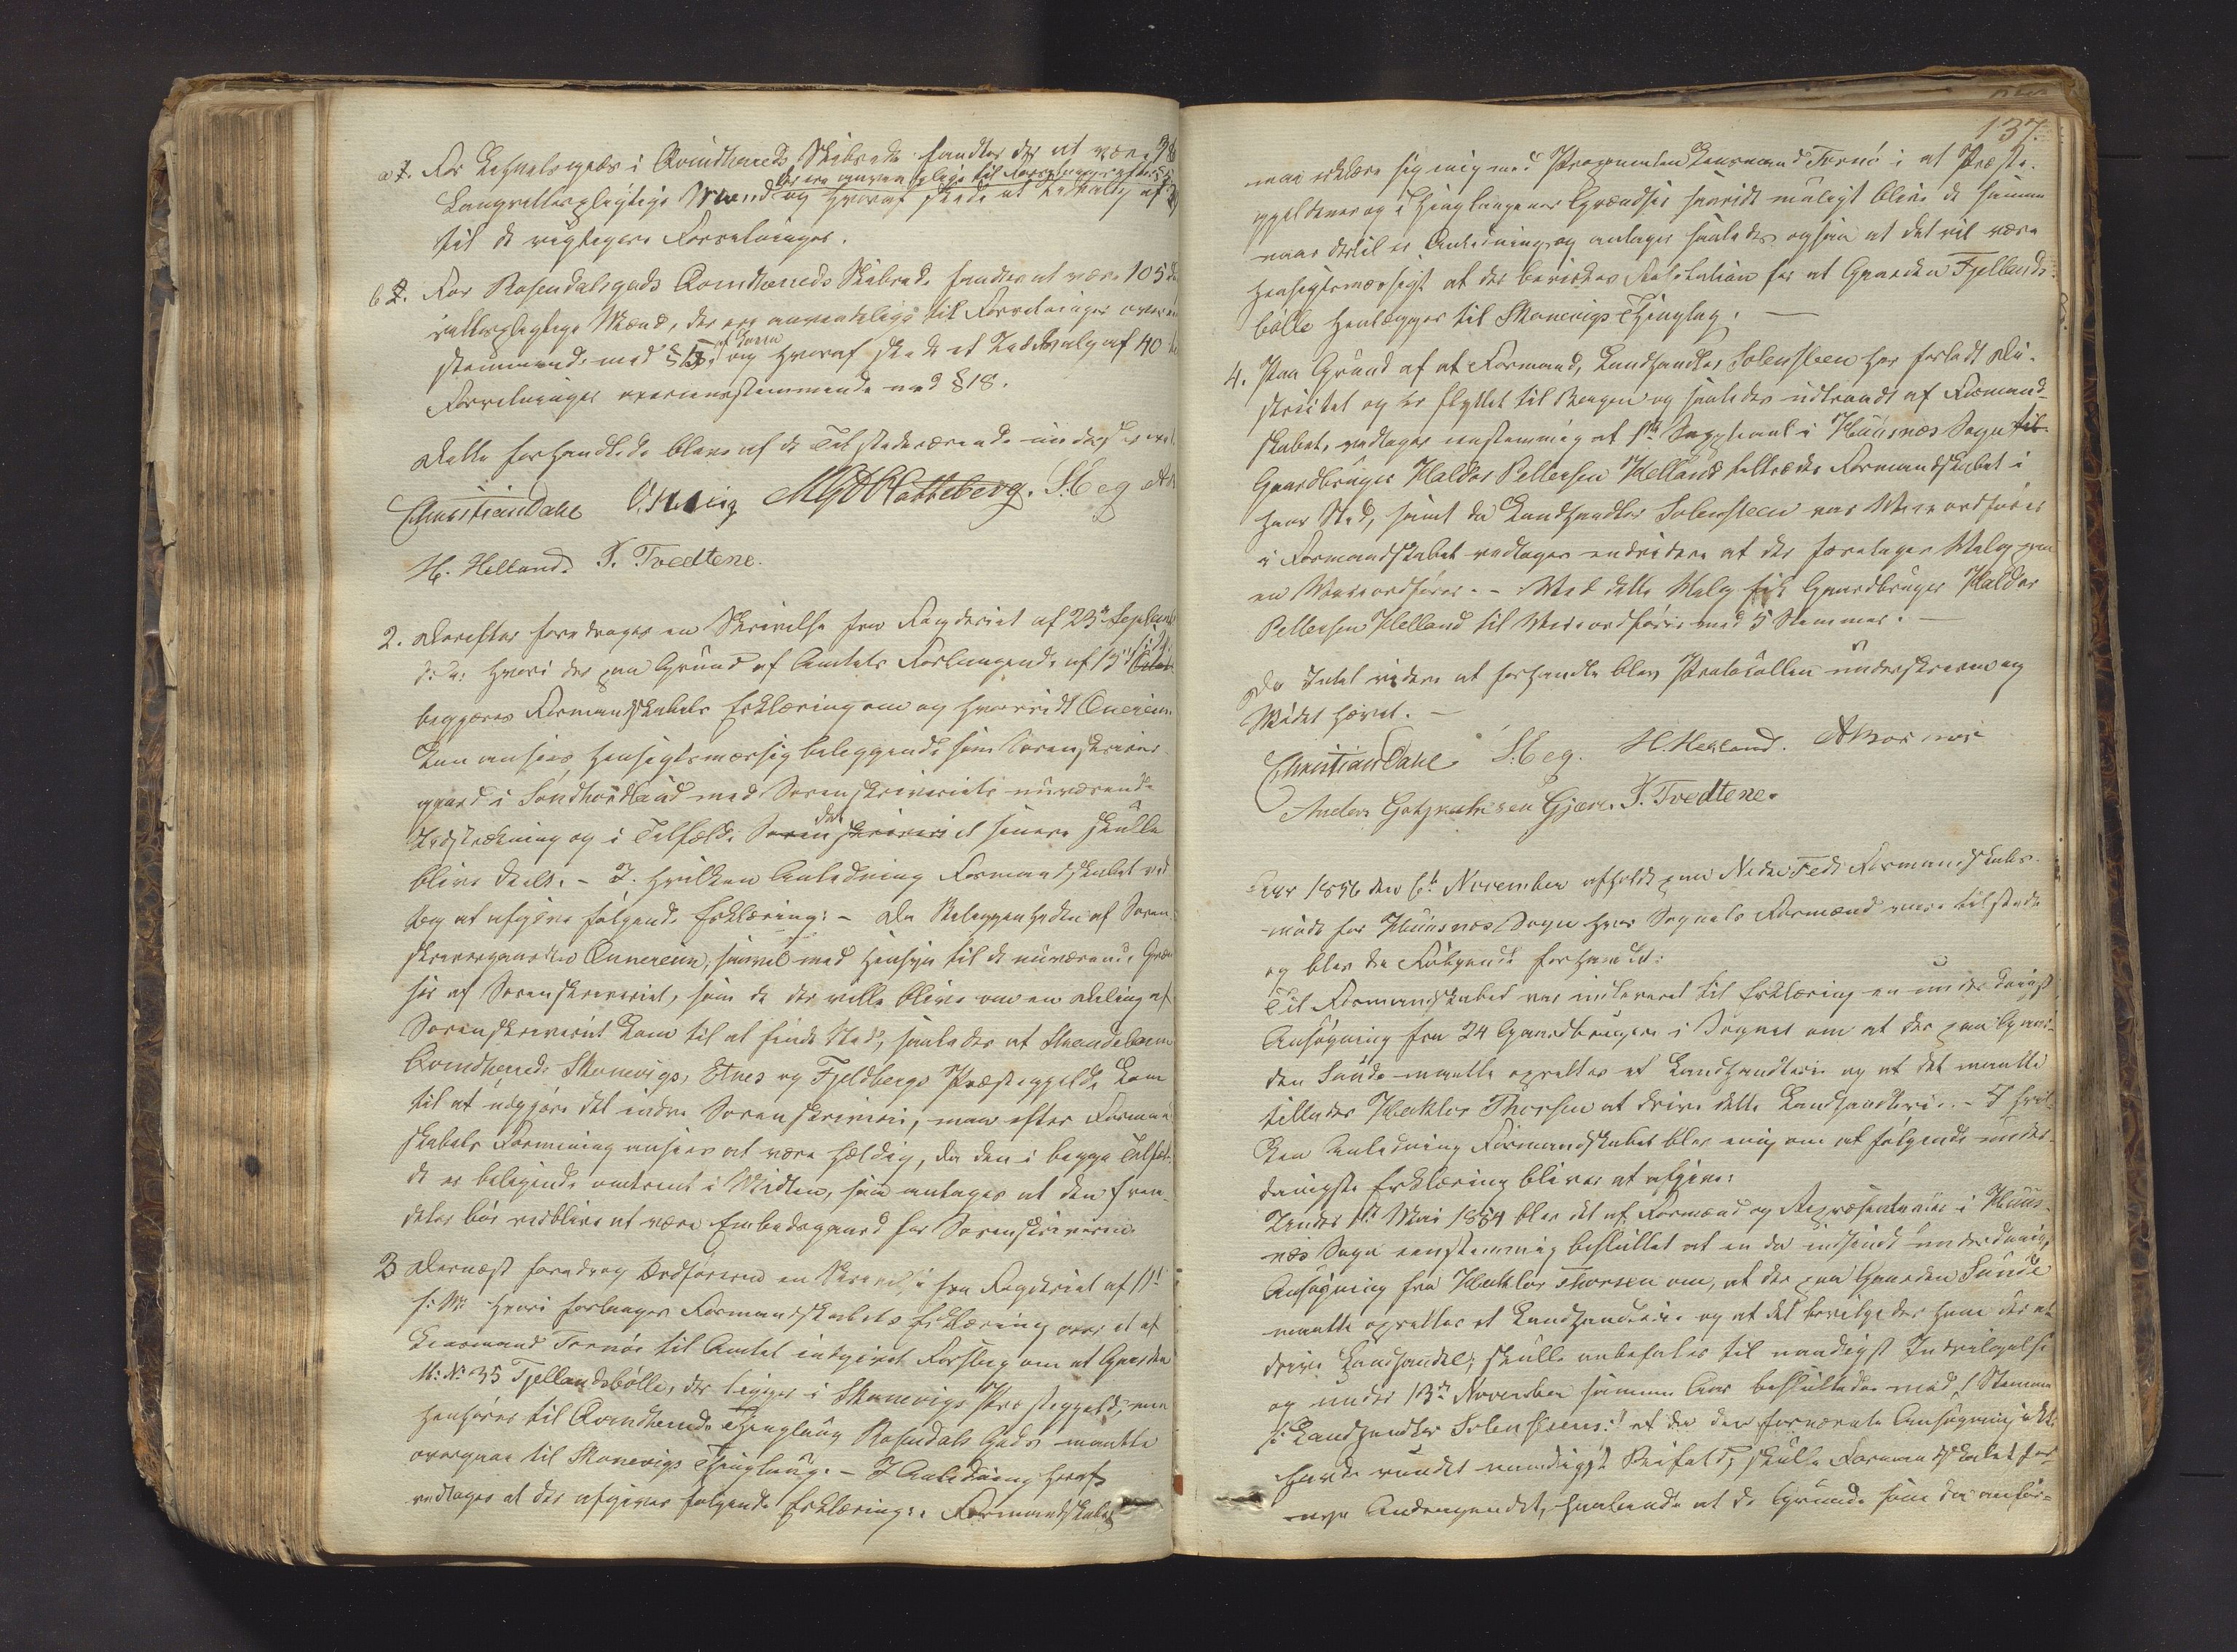 a 1. For Lehnets gods i Qvindhereds Skibrede fandtes der at være
der ere anvendelige til Forretninger efter § 5
Laugrettespligtige Mænd og hvoraf skede et Udvalg af
til de vigtigere Forretninger.
b 2. For Rosendalsgods Qvindhereds Skibrede fandtes at være 105
rettespligtige Mænd, der ere anvendelige til Forretninger overeens-
stemmende med § 5 af Loven og hvoraf skede et Udvalg af 40 til
Forretninger overeensstemmende med § 18.
Dette forhandlede bleve af de Tilstedeværende underskrevet.
Christian Dahl M G Hatteberg. S. Eeg
H. Helland. T. Tvedtene.
2. Derefter foredroges en Skrivelse fra Fogderiet af 23de September
d: A: hvori der paa Grund af Amtets Forlangende af 15de s. M.
begjæres Formandskabets Erklæring om og hvorvidt Onereim
kan ansees hensigtsmæssig beliggende som Sorenskriver-
gaard i Søndhordland med Sorenskriveriets nuværende
Udstrækning og i Tilfælde det senere skulle
blive deelt. - I hvilken Anledning Formandskabet ved-
tog at afgive følgende Erklæring: - Da Beliggenheden af Soren-
skrivergaarden Onnereim, saavel med Hensyn til de nuværende Græn-
ser af Sorenskriveriet, som de der ville blive om en Deling af
Sorenskriveriet kom til at finde Sted, saaledes at Strandebarm
Qvindhered, Skonevigs, Etnes og Fjeldbergs Præstegjelde kom
til at udgjøre det indre Sorenskriveri, maa efter Formand-
skabets Formening ansees at være heldig, da den i begge Tilfæl-
de er beliggende omtrent i Midten, saa antages at den frem-
deles bør vedblive at være Embedsgaard for Sorenskriveren.
3 Dernæst foredrog Ordføreren en Skrivelse fra Fogderiet af 1ste
s: M: hvori forlanges Formandskabets Erklæring over et af
Lensmand Tornøe til Amtet indgivet Forslag om at Gaarden
M: No 35 Fjellandsbølle, der ligger i Skonevigs Præstegjeld, men
henhører til Qvindhereds Thinglaug Rosendals Gods maatte
overgaae til Skonevigs Thinglaug. - I Anledning heraf
vedtages at der afgives følgende Erklæring: Formandskabet
137.
maa erklære sig enig med Proponenten Lensmand Tornøe i at Præste-
gjeldenes og Thinglaugenes Grændser saavidt muligt blive de samme
naar dertil er Anledning og antages saaledes ogsaa at det vil være
hensigtsmæssigt at der bevirkes Resolution for at Gaarden Fjellands-
bølle henlægges til Skonevigs Thinglag. -
4. Paa Grund af at Formand, Landhandler Solensteen har forladt Di-
strictet og er flyttet til Bergen og saaledes udtraadt af Formand-
skabet, vedtages eenstemmig at 1ste Suppleant i Huusnæs Sogn
Gaardbruger Haldor Pettersen Helland tiltræder Formandskabet i
hans Sted, samt da Landhandler Solensteen var Viceordfører
i Formandskabet vedtages endvidere at der foretages Valg paa
en Viceordfører. - Ved dette Valg fik Gaardbruger Haldor
Pettersen Helland til Viceordfører med 5 Stemmer. -
Da Intet videre at forhandle blev Protocollen underskreven og
Mødet hævet. -
Christian Dahl S. Eeg. H. Helland.
Anders Gjære. T. Tvedtene.
Aar 1856 den 6te November afholdt paa Nedre Feet Formandskabs-
møde for Huusnæs Sogn hvor Sognets Formænd vare tilstede
og blev da Følgende forhandlet:
Til Formandskabet var indleveret til Erklæring en underdanigst
Ansøgning fra 24 Gaardbrugere i Sognet om at der paa Gaar-
den Sunde maatte oprettes et Landhandleri og at det maatte
tillades Hektor Thorsen at drive dette Landhandleri. - I hvil-
ken Anledning Formandskabet blev enig om at følgende under-
danigste Erklæring bliver at afgive:
Under 1ste Mai 1854 blev det af Formænd og Repræsentanter i Huus-
næs Sogn eenstemmig besluttet at en da indsendt underdanig
Ansøgning fra Hektor Thorsen om, at der paa Gaarden Sunde
maatte oprettes et Landhandleri og at det bevilgedes ham der at
drive Landhandel, skulle anbefales til naadigst Indvilgelse
og under 13de November samme Aar besluttedes mod 1 Stemme
/: Landhandler Solensteens :/ at da den fornævnte Ansøgning ikke
havde vundet naadigst Bifald, skulle Formandskabet for-
nye Andragendet, holdende at de Grunde som da anfør-